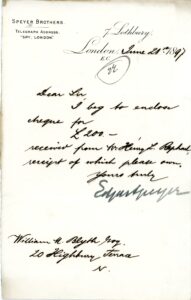 SPEYER BROTHERS.
TELEGRAPH ADDRESS
"SPY, LONDON"
7, Lothbury,
London, June 28th 1897
E.C.
Dear Sir
I beg to enclose
cheque for
£ 200 —
received from Mr Henry L. Raphael
receipt of which please own,
Yours truly
Edgar Speyer
William H. Blyth Esq.
20 Highbury Terrace
N.